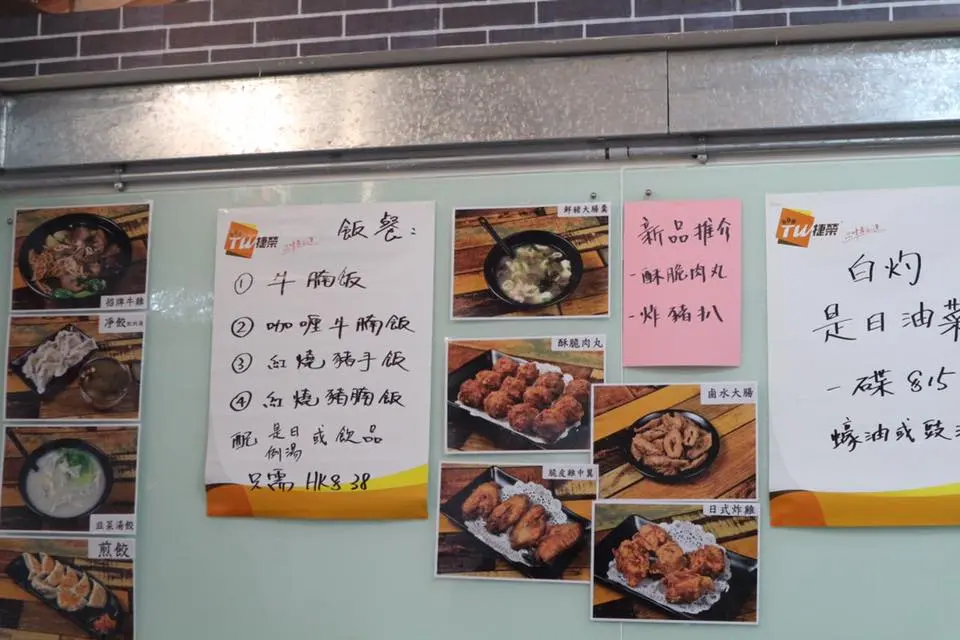 招牌牛雜
净餃
韮菜湯餃
煎餃
TW捷榮
飯餐：
① 牛腩飯
② 咖喱牛腩飯
③ 紅燒豬手飯
④ 紅燒豬腩飯
配 是日例湯 或 飲品
只需 HK$38
鮮豬大腸羹
酥脆肉丸
脆皮雞中翼
新品推介
- 酥脆肉丸
- 炸豬扒
鹵水大腸
日式炸雞
TW捷榮
白灼
是日油菜
一碟 $15
蠔油或豉